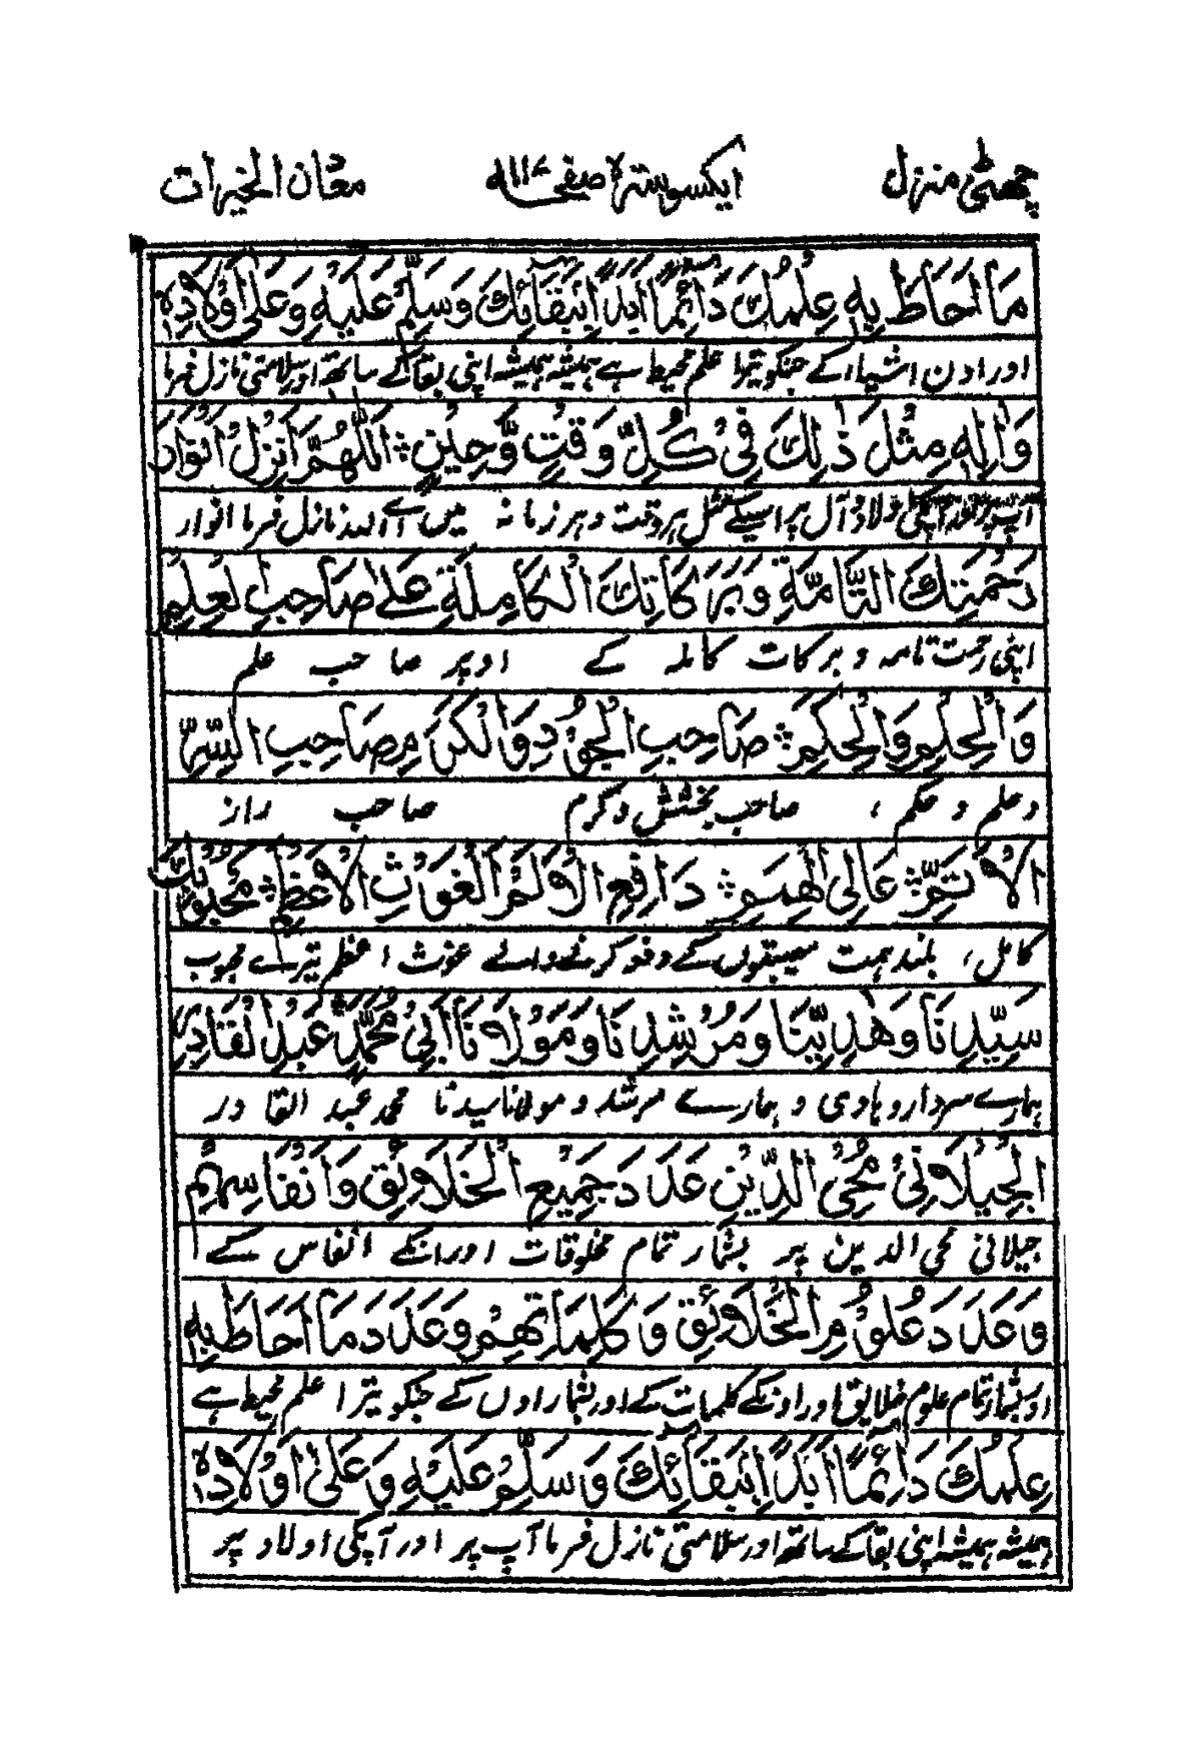 چھٹی منزل ایکسو سترہ صفحہ ۱۱۷ معان الخیرات
مَا اَحَاطَ بِهٖ عِلْمُكَ دَائِمًا اَبَدًا بِبَقَائِكَ وَسَلِّمْ عَلَيْهِ وَعَلٰى اَوْلَادِهٖ
اور اون اشیاء کے جنکو تیرا علم محیط ہے ہمیشہ ہمیشہ اپنی بقا کے ساتھ اور سلامتی نازل فرما
وَاٰلِهٖ مِثْلَ ذٰلِكَ فِيْ كُلِّ وَقْتٍ وَّحِيْنٍ ؞ اَللّٰهُمَّ اَنْزِلْ اَنْوَارَ
آل پر اسیکے مثل ہر وقت و ہر زمانہ میں اے اللہ نازل فرما انوار
رَحْمَتِكَ التَّامَّةِ وَبَرَكَاتِكَ الْكَامِلَةِ عَلٰى صَاحِبِ الْعِلْمِ
اپنی رحمت تامہ و برکات کاملہ کے اوپر صاحب علم
وَالْحِلْمِ وَالْحِكَمِ ؞ صَاحِبِ الْجُوْدِ وَالْكَرَمِ صَاحِبِ السِّرِّ
و حلم و حکم ، صاحب بخشش و کرم صاحب راز
الْاَتَمِّ ؞ عَالِى الْهِمَمِ ؞ دَافِعِ الْاَلَمِ الْغَوْثِ الْاَعْظَمِ ؞ مَحْبُوْبِكَ
کامل، بلند ہمت مصیبتوں کے دفع کرنے والے غوث اعظم تیرے محبوب
سَيِّدِنَا وَهَادِيْنَا وَمُرْشِدِنَا وَمَوْلَانَا اَبِيْ مُحَمَّدٍ عَبْدِ الْقَادِرِ
ہمارے سردار و ہادی و ہمارے مرشد و مولانا سیدنا محمد عبد القادر
الْجِيْلَانِيْ مُحْيِ الدِّيْنِ عَدَدَ جَمِيْعِ الْخَلَائِقِ وَاَنْفَاسِهِمْ
جیلانی محی الدین پر بشمار تمام مخلوقات اور انکے انفاس کے
وَعَدَدَ عُلُوْمِ الْخَلَائِقِ وَكَلِمَاتِهِمْ وَعَدَدَ مَا اَحَاطَ بِهٖ
اور بشمار تمام علوم خلایق اور اونکے کلمات کے اور بشمار اوں کے جنکو تیرا علم محیط ہے
عِلْمُكَ دَائِمًا اَبَدًا بِبَقَائِكَ وَسَلِّمْ عَلَيْهِ وَعَلٰى اَوْلَادِهٖ
ہمیشہ ہمیشہ اپنی بقا کے ساتھ اور سلامتی نازل فرما آپ پر اور آپکی اولاد پر